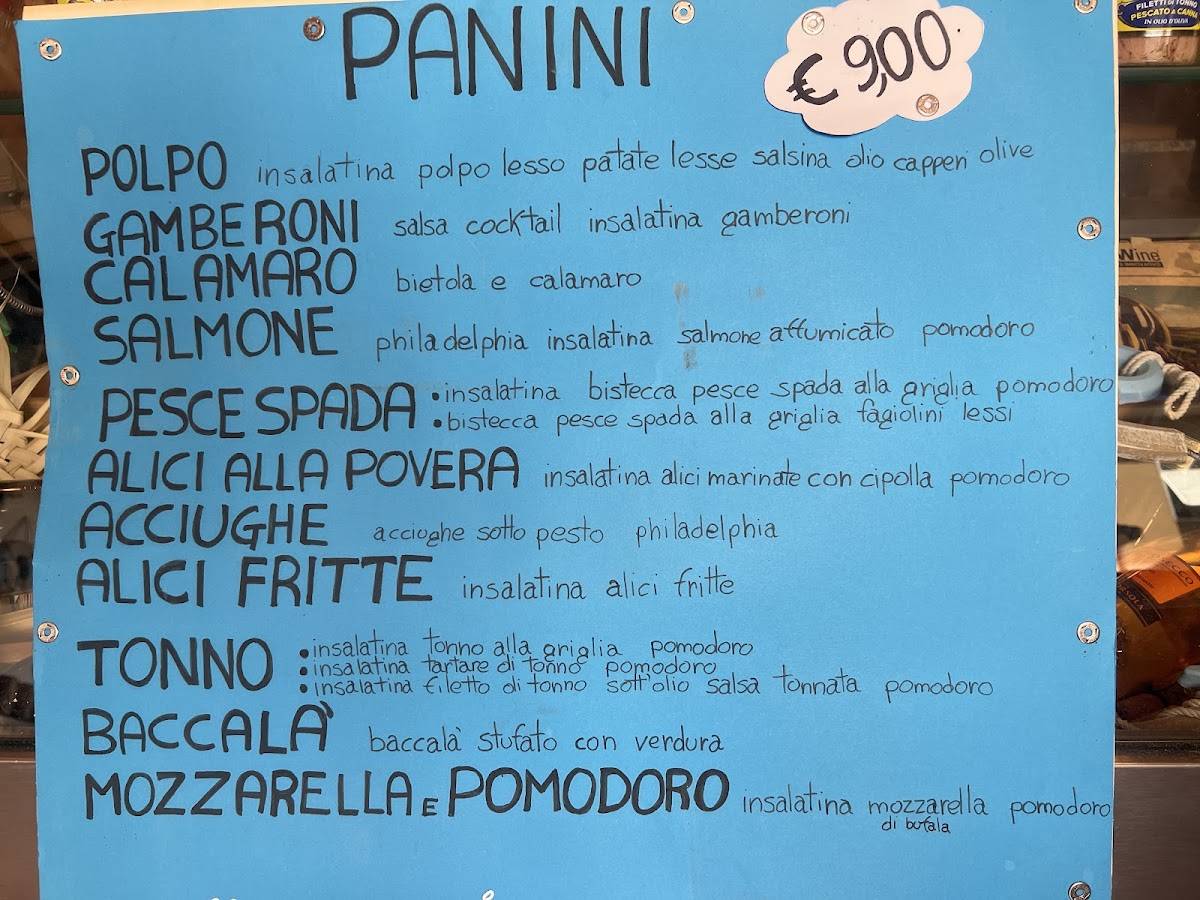 PANINI
€ 9,00
FILETTI DI TONNO
PESCATO A CANNA
IN OLIO D'OLIVA
POLPO insalatina polpo lesso patate lesse salsina olio capperi olive
GAMBERONI salsa cocktail insalatina gamberoni
CALAMARO bietola e calamaro
Wine
SALMONE philadelphia insalatina salmone affumicato pomodoro
PESCE SPADA • insalatina bistecca pesce spada alla griglia pomodoro
• bistecca pesce spada alla griglia fagiolini lessi
ALICI ALLA POVERA insalatina alici marinate con cipolla pomodoro
ACCIUGHE acciughe sotto pesto philadelphia
ALICI FRITTE insalatina alici fritte
TONNO • insalatina tonno alla griglia pomodoro
• insalatina tartare di tonno pomodoro
• insalatina filetto di tonno sott'olio salsa tonnata pomodoro
BACCALÀ baccalà stufato con verdura
MOZZARELLA E POMODORO insalatina mozzarella pomodoro
di bufala